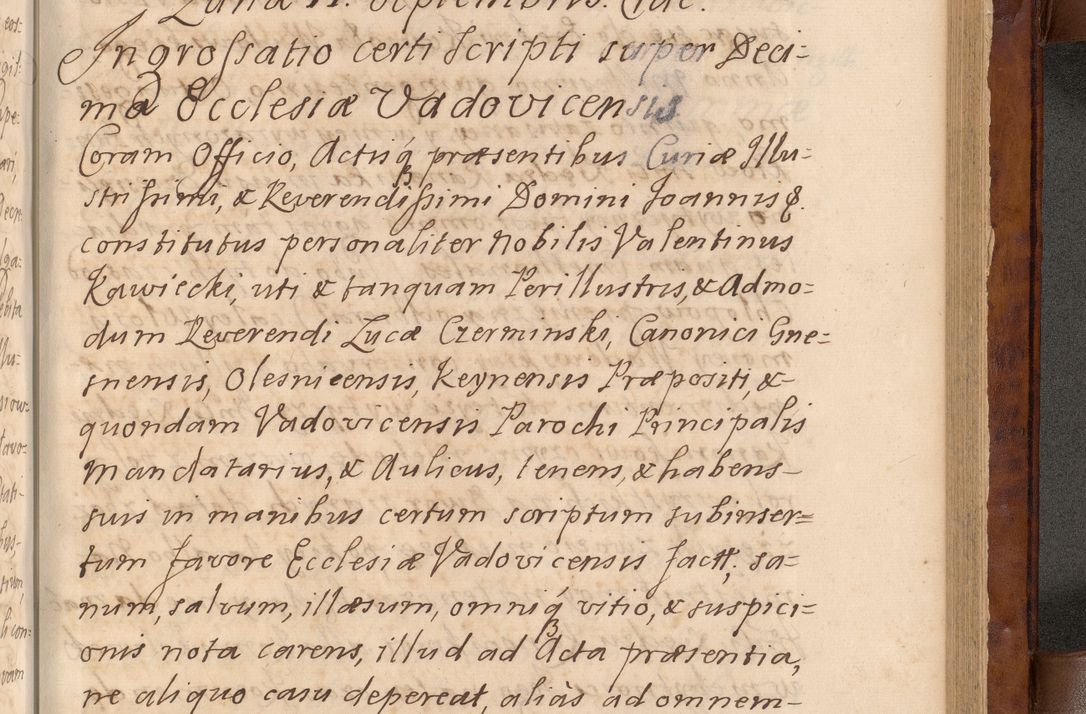 Luna 11. Septembris. eius.
Ingrossatio certi scripti super Deci=
ma Ecclesiæ Vadovicensis
Coram Officio, Actisq́ præsentibus Curiæ Illu=
strissimi, & Reverendissimi Domini Joannis &.
constitutus personaliter Nobilis Valentinus
Kawiecki, uti & tanquam Perillustris, & Admo=
dum Reverendi Lucæ Czerminski, Canonici Gne=
snensis, Olesnicensis, Keynensis Præpositi, &
quondam Vadovicensis Parochi Principalis
Mandatarius, & Aulicus, tenens, & habens
suis in manibus certum scriptum subinser=
tum favore Ecclesiæ Vadovicensis factt; sa=
num, salvum, illæsum, omniq́ vitio, & suspici=
onis nota carens, illud ad Acta præsentia,
ne aliquo casu depereat, aliàs ad omnem